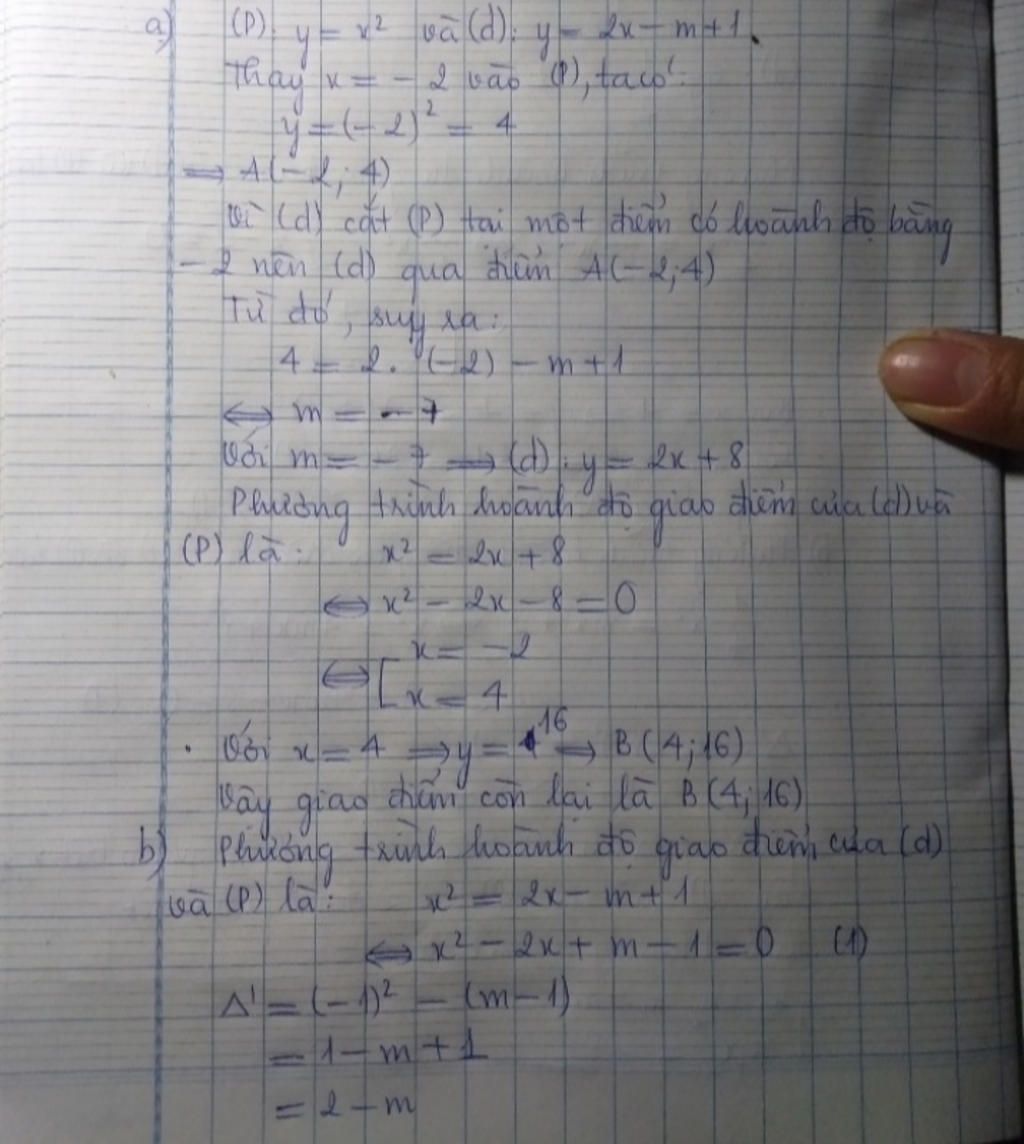 a) (P): y = x² và (d): y = 2x - m + 1.
Thay x = -2 vào (P), ta có:
y = (-2)² = 4
⟹ A(-2; 4)
Vì (d) cắt (P) tại một điểm có hoành độ bằng
-2 nên (d) qua điểm A(-2; 4)
Từ đó, suy ra:
4 = 2. (-2) - m + 1
⟺ m = -7
Với m = -7 ⟹ (d): y = 2x + 8
Phương trình hoành độ giao điểm của (d) và
(P) là: x² = 2x + 8
⟺ x² - 2x - 8 = 0
⟺ [ x = -2
x = 4
. Với x = 4 ⟹ y = 16 ⟹ B(4; 16)
Vậy giao điểm còn lại là B(4; 16)
b) Phương trình hoành độ giao điểm của (d)
và (P) là: x² = 2x - m + 1
⟺ x² - 2x + m - 1 = 0 (1)
Δ' = (-1)² - (m - 1)
= 1 - m + 1
= 2 - m